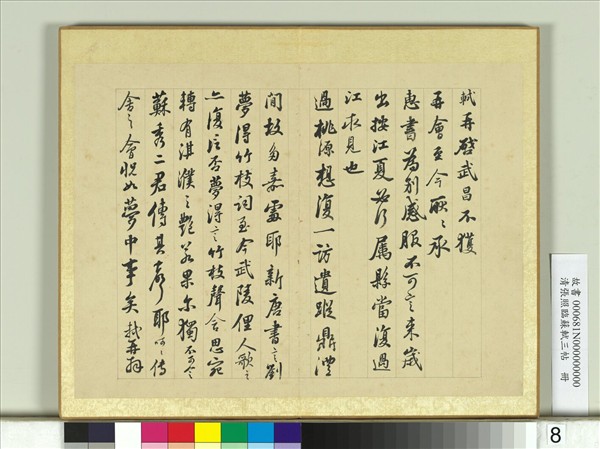 軾再啓武昌不獲
再會至今耿耿承
惠書為別感服不可言来歲
出按江夏必行属縣當復過
江求見也
過桃源想復一訪遺蹤鼎澧
間故多嘉處耶新唐書言劉
夢得竹枝詞至今武陵俚人歌之
亦復信否夢得言竹枝聲含思宛
轉有淇濮之艷若果尔獨不可令
蘇秀二君傳其聲耶呵呵傳
舍之會怳如夢中事矣軾再拜
故書 000681N000000000
清張照臨蘇軾三帖 冊
8